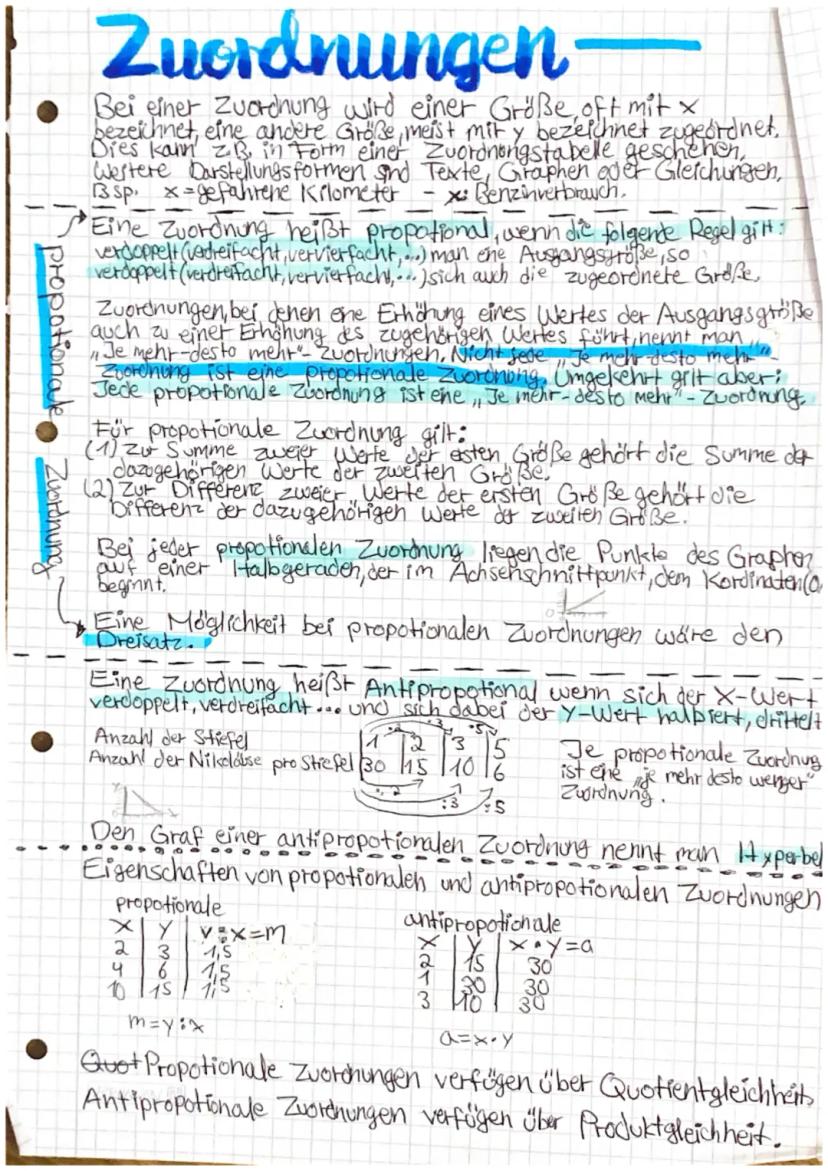 Zuordnungen
Bei einer Zuordnung wird einer Größe, oft mit x
bezeichnet, eine andere Größe, meist mit y bezeichnet zugeordnet.
Dies kann z.B. in Form einer Zuordnungstabelle geschehen,
Weitere Darstellungsformen sind Texte, Graphen oder Gleichungen,
Bsp. x=gefahrene Kilometer - x: Benzinverbrauch.
Eine Zuordnung heißt propotional, wenn die folgende Regel gilt:
verdoppelt (verdreifacht, vervierfacht,...) man eine Ausgangsgröße, so
verdoppelt (verdreifacht, vervierfacht,...) sich auch die zugeordnete Größe.
propotionale
Zuordnungen, bei denen eine Erhöhung eines Wertes der Ausgangsgröße
auch zu einer Erhöhung des zugehörigen Wertes führt, nennt man
„Je mehr-desto mehr"- Zuordnungen. Nicht jede „Je mehr-desto mehr"-
Zuordnung ist eine propotionale Zuordnung. Umgekehrt gilt aber:
Jede propotionale Zuordnung ist eine „Je mehr-desto mehr"-Zuordnung.
Für propotionale Zuordnung gilt:
(1) Zur Summe zweier Werte der ersten Größe gehört die Summe der
dazugehörigen Werte der zweiten Größe.
(2) Zur Differenz zweier Werte der ersten Größe gehört die
Differenz der dazugehörigen Werte der zweiten Größe.
Zuordnung
Bei jeder propotionalen Zuordnung liegen die Punkte des Graphen
auf einer Halbgeraden, der im Achsenschnittpunkt, dem Kordinaten(0
beginnt.
Eine Möglichkeit bei propotionalen Zuordnungen wäre den
Dreisatz.
Eine Zuordnung heißt Antipropotional wenn sich der X-Wert
verdoppelt, verdreifacht ... und sich dabei der Y-Wert halbiert, drittelt
·2 ·3 ·5
Anzahl der Stiefel 1 2 3 5
Anzahl der Nikoläuse pro Stiefel 30 15 10 6
:2 :3 :5
Je propotionale Zuordnung
ist eine „je mehr desto weniger"
Zuordnung.
Den Graf einer antipropotionalen Zuordnung nennt man Hyperbel
Eigenschaften von propotionalen und antipropotionalen Zuordnungen
propotionale
x y y:x=m
2 3 1,5
4 6 1,5
10 15 1,5
m=y:x
antipropotionale
x y x·y=a
2 15 30
1 30 30
3 10 30
a=x·y
Quot Propotionale Zuordnungen verfügen über Quotientgleichheit.
Antipropotionale Zuordnungen verfügen über Produktgleichheit.